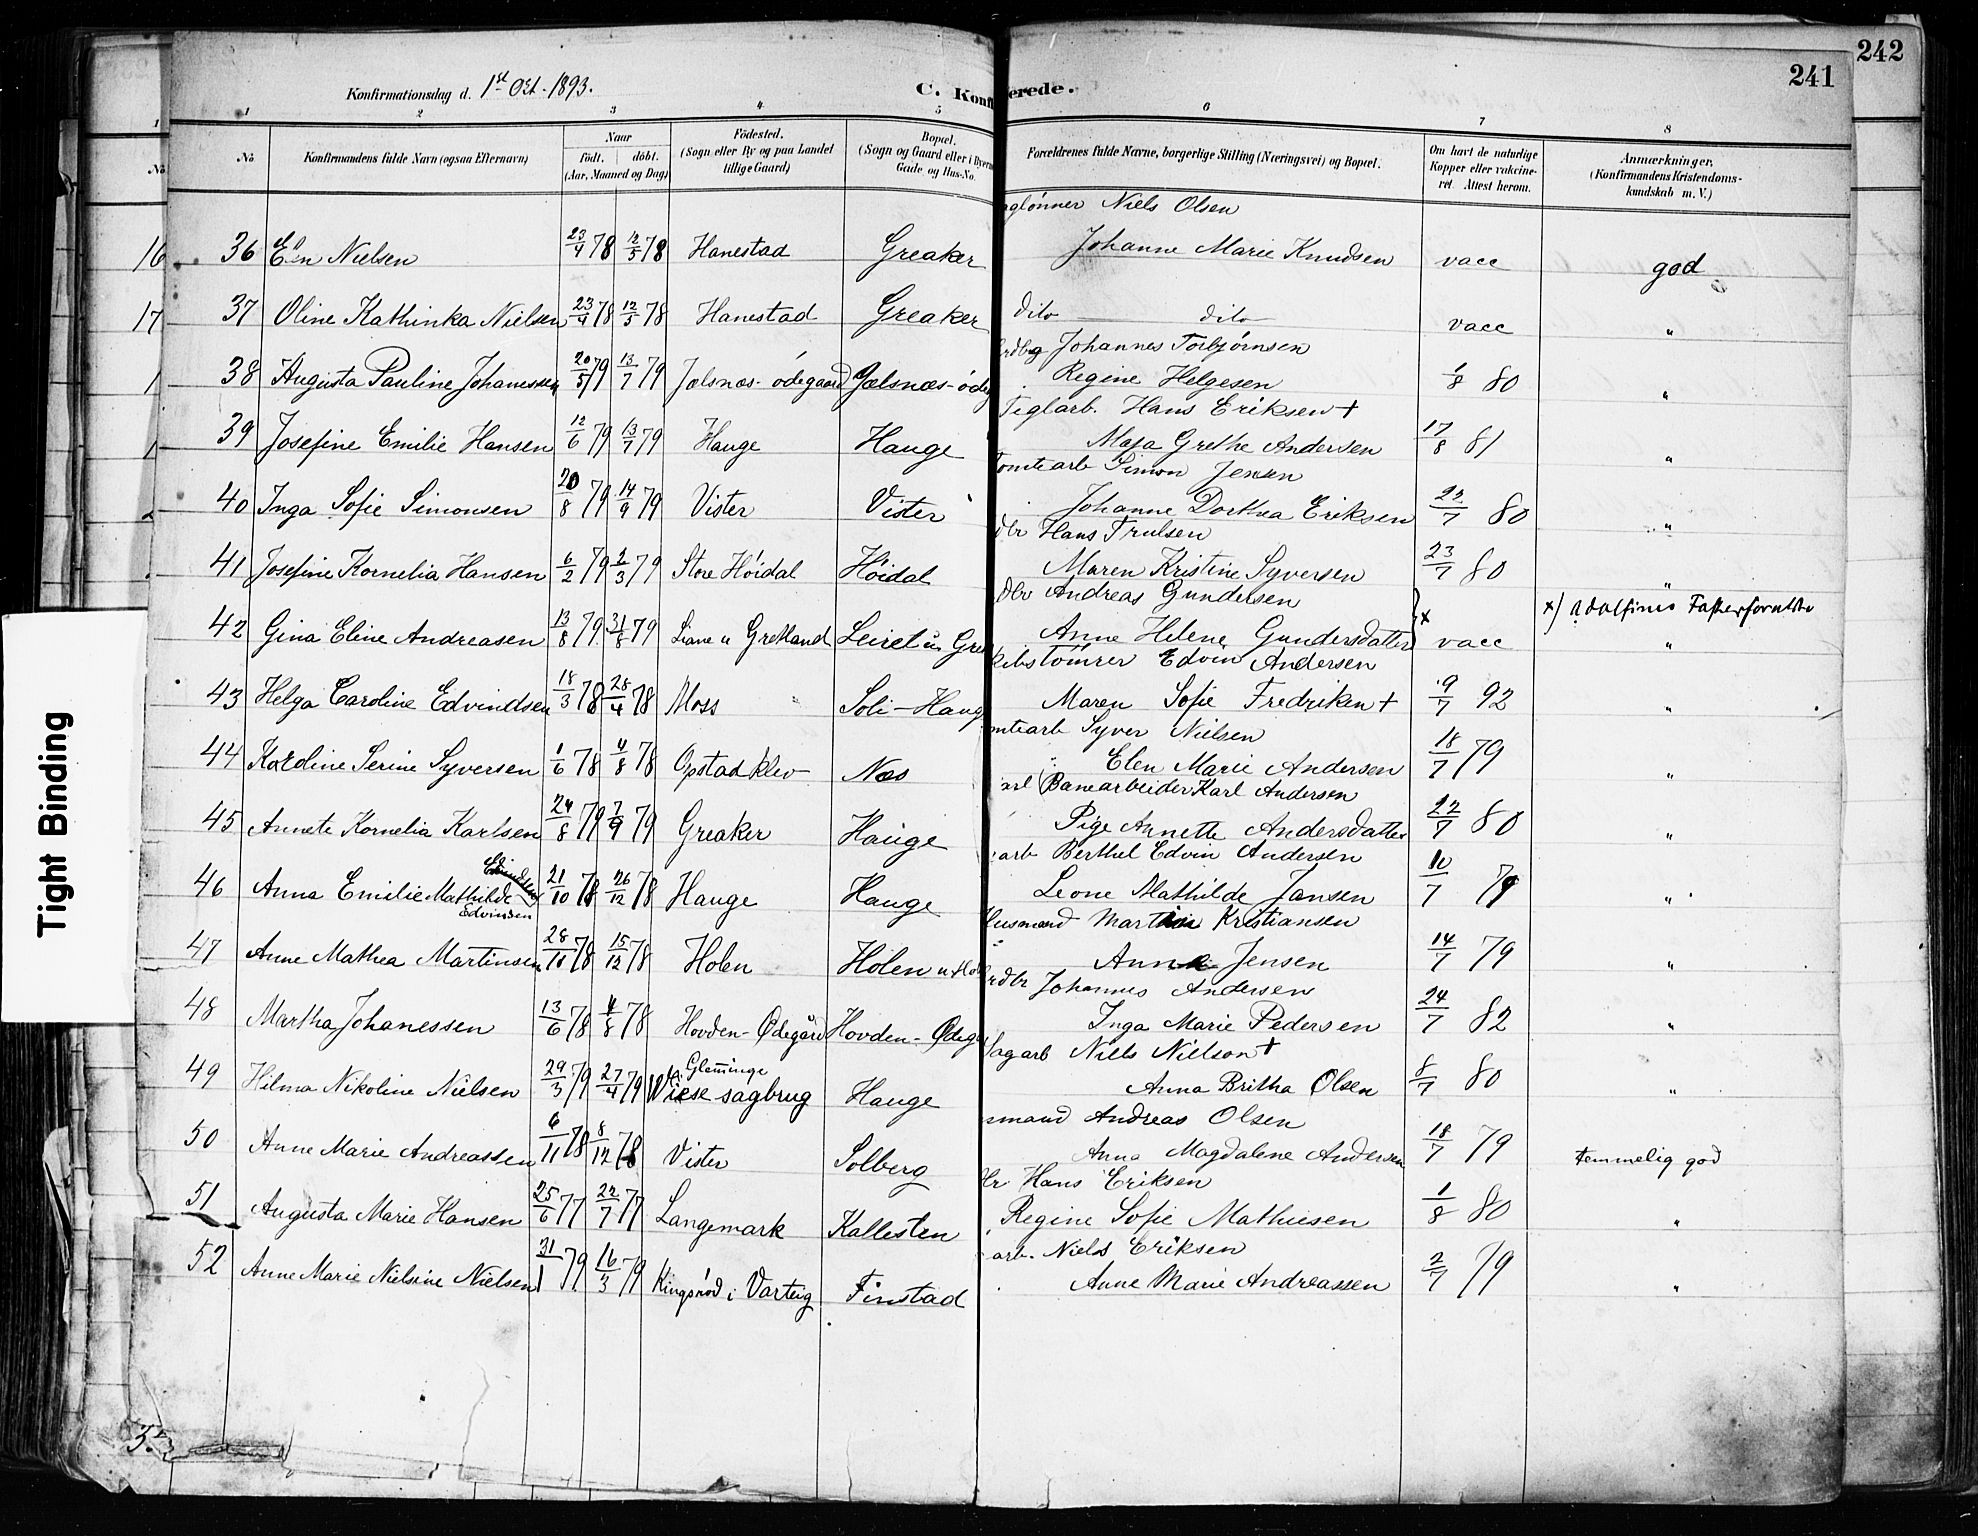 242
241
Konfirmationsdag d. 1st Oct. 1893.
C. Konfi erede.
1 2 3 4 5 6 7 8
No
Konfirmandens fulde Navn (ogsaa Efternavn)
Naar
födt. döbt.
(Aar, Maaned og Dag)
Födested.
(Sogn eller By og paa Landet
tillige Gaard)
Bopæl.
(Sogn og Gaard eller i Byern
Gade og Hus-No.
Forældrenes fulde Navne, borgerlige Stilling (Næringsvei) og Bopæl.
Om havt de naturlige
Kopper eller vakcine-
ret. Attest herom.
Anmærkninger,
(Konfirmandens Kristendoms-
kundskab m. V.)
glønner Niels Olsen
16 36 Nielsen 23/4 78 12/5 78 Hanestad Greaker Johanne Marie Knudsen vacc god
17 37 Oline Kathinka Nielsen 23/4 78 12/5 78 Hanestad Greaker dito dito vacc "
Johannes Torbjørnsen
1 38 Augusta Pauline Johanessen 20/5 79 13/7 79 Jælsnæs-ödegaard Jælsnæs-öde Regine Helgesen 1/8 80 "
Teglarb. Hans Eriksen +
39 Josefine Emilie Hansen 12/6 79 13/7 79 Hauge Hauge Maja Grethe Andersen 17/8 81 "
omtearb Simon Jensen
40 Inga Sofie Simonsen 20/8 79 14/9 79 Vister Vister Johanne Dorthea Eriksen 22/7 80 "
dbr Hans Trulsen
41 Josefine Kornelia Hansen 6/2 79 2/3 79 Store Høidal Höidal Maren Kristine Syversen 23/7 80 "
dbr Andreas Gundersen
42 Gina Eline Andreasen 13/8 79 31/8 79 Liane u Gretland Leiret u Gre Anne Helene Gundersdatter } x vacc x) "
Tömrer Edvin Andersen
43 Helga Caroline Edvindsen 18/3 78 28/4 78 Moss Soli-Haug Maren Sofie Fredriksen + 9/7 92 "
mtearb Syver Nielsen
44 Karoline Serine Syversen 1/6 78 4/8 78 Opstadklev Næs Elen Marie Andersen 18/7 79 "
arl Banearbeider Karl Andersen
45 Annete Kornelia Karlsen 24/8 79 7/9 79 Greaker Hauge Pige Annette Andersdatter 22/7 80 "
arb Berthel Edvin Andersen
46 Anna Emilie Mathilde Edvinsen 21/10 78 26/12 78 Hauge Hauge Leone Mathilde Jansen 10/7 79 "
Husmand Martin Kristiansen
47 Anne Mathea Martinsen 28/11 78 15/12 78 Holen Holen u Ho Anne Jensen 14/7 79 "
rdbr Johannes Andersen
48 Martha Johanessen 13/6 78 4/8 78 Hovden-Ødegård Hovden-Ødeg Inga Marie Pedersen 24/7 82 "
Sagarb Niels Nielson +
49 Hilma Nikoline Nielsen 29/3 79 27/4 79 Wiese sagbrug Glemminge Hauge Anna Britha Olsen 8/7 80 "
mand Andreas Olsen
50 Anne Marie Andreassen 6/11 78 8/12 78 Vister Solberg Anna Magdalene Andersen 18/7 79 temmelig god
br Hans Eriksen
51 Augusta Marie Hansen 25/6 77 22/7 77 Langemark Kallesten Regine Sofie Mathiesen 1/8 80 "
arb. Niels Eriksen
52 Anne Marie Nielsine Nielsen 31/1 79 16/3 79 Kingsrød i Varteig Finstad Anne Marie Andreassen 2/7 79 "
Tight Binding